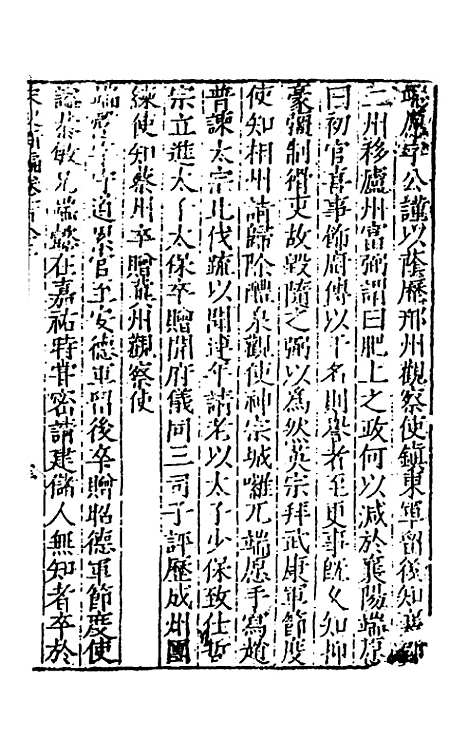 端愿字公謹以蔭歷邢州觀察使鎮東軍留後知襄郢
二州移廬州富弼謂曰肥上之政何以減於襄陽端愿
曰初官喜事飾廚傳以干名則譽者至更事既久知抑
豪彊制猾吏故毀隨之弼以為然英宗拜武康軍節度
使知相州請歸除醴泉觀使神宗城囉兀端愿手寫趙
普諫太宗北伐疏以聞連年請老以太子少保致仕哲
宗立進太子太保卒贈開府儀同三司子評歷成州團
練使知蔡州卒贈 州觀察使
端 字守道累官至安德軍留後卒贈昭德軍節度使
諡恭敏兄端懿在嘉祐時嘗密請建儲人無知者卒於